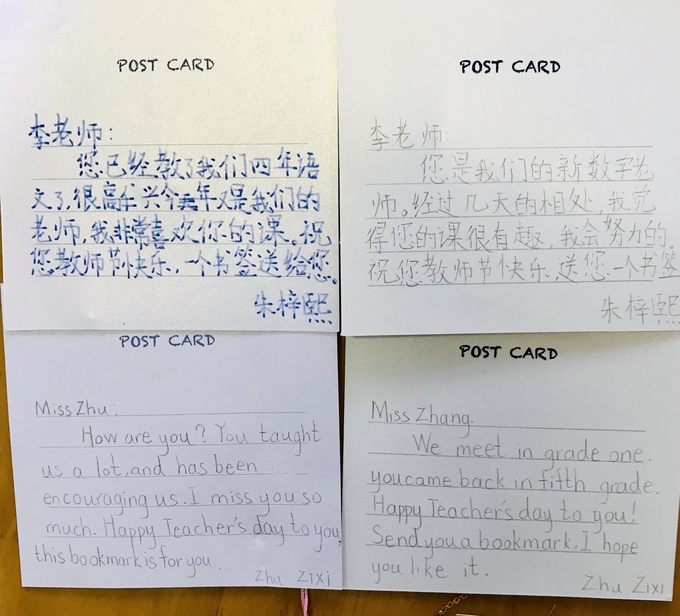 POST CARD
李老师：
您已经教了我们四年语
文了,很高兴今年又是我们的
老师,我非常喜欢你的课。祝
您教师节快乐,一个书签送给您。
朱梓熙
POST CARD
李老师:
您是我们的新数字老
师。经过几天的相处,我觉
得您的课很有趣,我会努力的。
祝您教师节快乐,送您一个书签
朱梓熙
POST CARD
Miss Zhu:
How are you? You taught
us a lot, and has been
encouraging us. I miss you so
much. Happy Teacher's day to you,
this bookmark is for you.
Zhu Zixi
POST CARD
Miss Zhang.
We meet in grade one.
you came back in fifth grade.
Happy Teacher's day to you!
Send you a bookmark. I hope
you like it.
Zhu Zixi